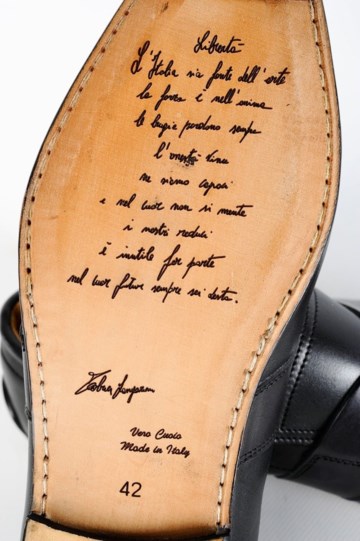 Libertà
L'Italia sia fonte dell'arte
la forza è nell'anima
le bugie perdono sempre
l'onestà
ne siamo capaci
e nel cuor non si mente
i nostri
è inutile far parte
nel cuor sempre sei
Vero Cuoio
Made in Italy
42